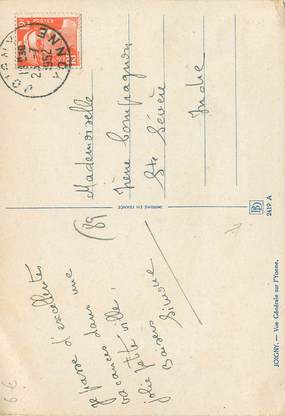 JOIGNY
YONNE
1952
Mademoiselle
Irène Compagnon
Ste Sévère
Indre
(89
IMPRIMÉ EN FRANCE
2419 A
je passe d'excellentes
vacances dans une
jolie petite ville !
Baisers
Simone
JOIGNY. — Vue Générale sur l'Yonne.
6 €